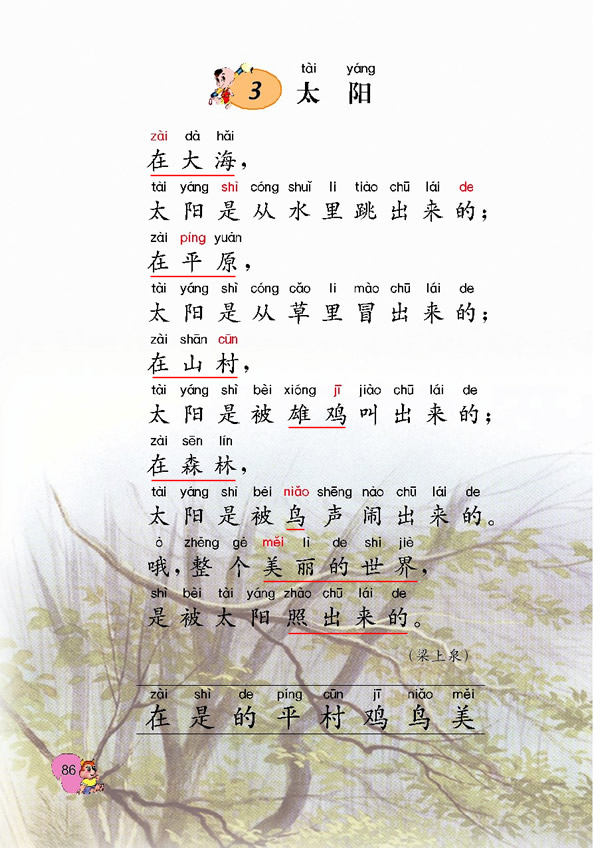 tài yáng
3 太 阳
zài dà hǎi
在 大 海，
tài yáng shì cóng shuǐ li tiào chū lái de
太 阳 是 从 水 里 跳 出 来 的；
zài píng yuán
在 平 原，
tài yáng shì cóng cǎo li mào chū lái de
太 阳 是 从 草 里 冒 出 来 的；
zài shān cūn
在 山 村，
tài yáng shì bèi xióng jī jiào chū lái de
太 阳 是 被 雄 鸡 叫 出 来 的；
zài sēn lín
在 森 林，
tài yáng shì bèi niǎo shēng nào chū lái de
太 阳 是 被 鸟 声 闹 出 来 的。
ó zhěng gè měi lì de shì jiè
哦，整 个 美 丽 的 世 界，
shì bèi tài yáng zhào chū lái de
是 被 太 阳 照 出 来 的。
（梁上泉）
zài shì de píng cūn jī niǎo měi
在 是 的 平 村 鸡 鸟 美
86